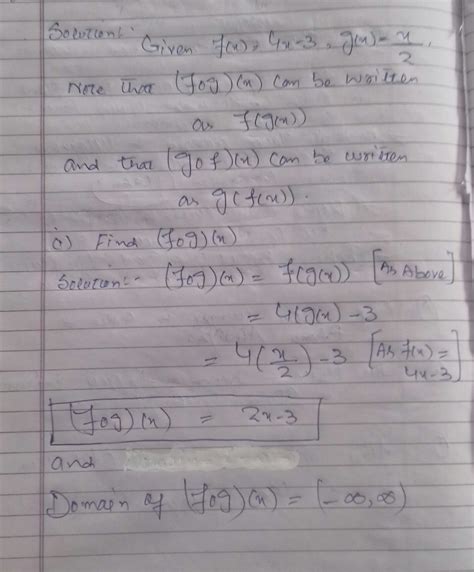 Solution:-
Given f(x) = 4x-3, g(x) = x/2,
Note that (fog)(x) can be written
as f(g(x))
and that (gof)(x) can be written
as g(f(x)).
a) Find (fog)(x)
Solution:- (fog)(x) = f(g(x)) [As Above]
= 4(g(x) -3
= 4(x/2) -3 [As f(x) = 4x-3]
(fog)(x) = 2x-3
and
Domain of (fog)(x) = (-∞, ∞)